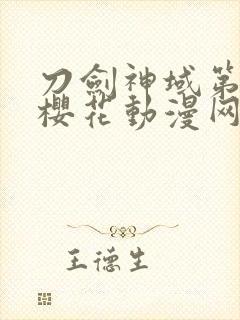 刀劍神域第
櫻花動漫网
王德生